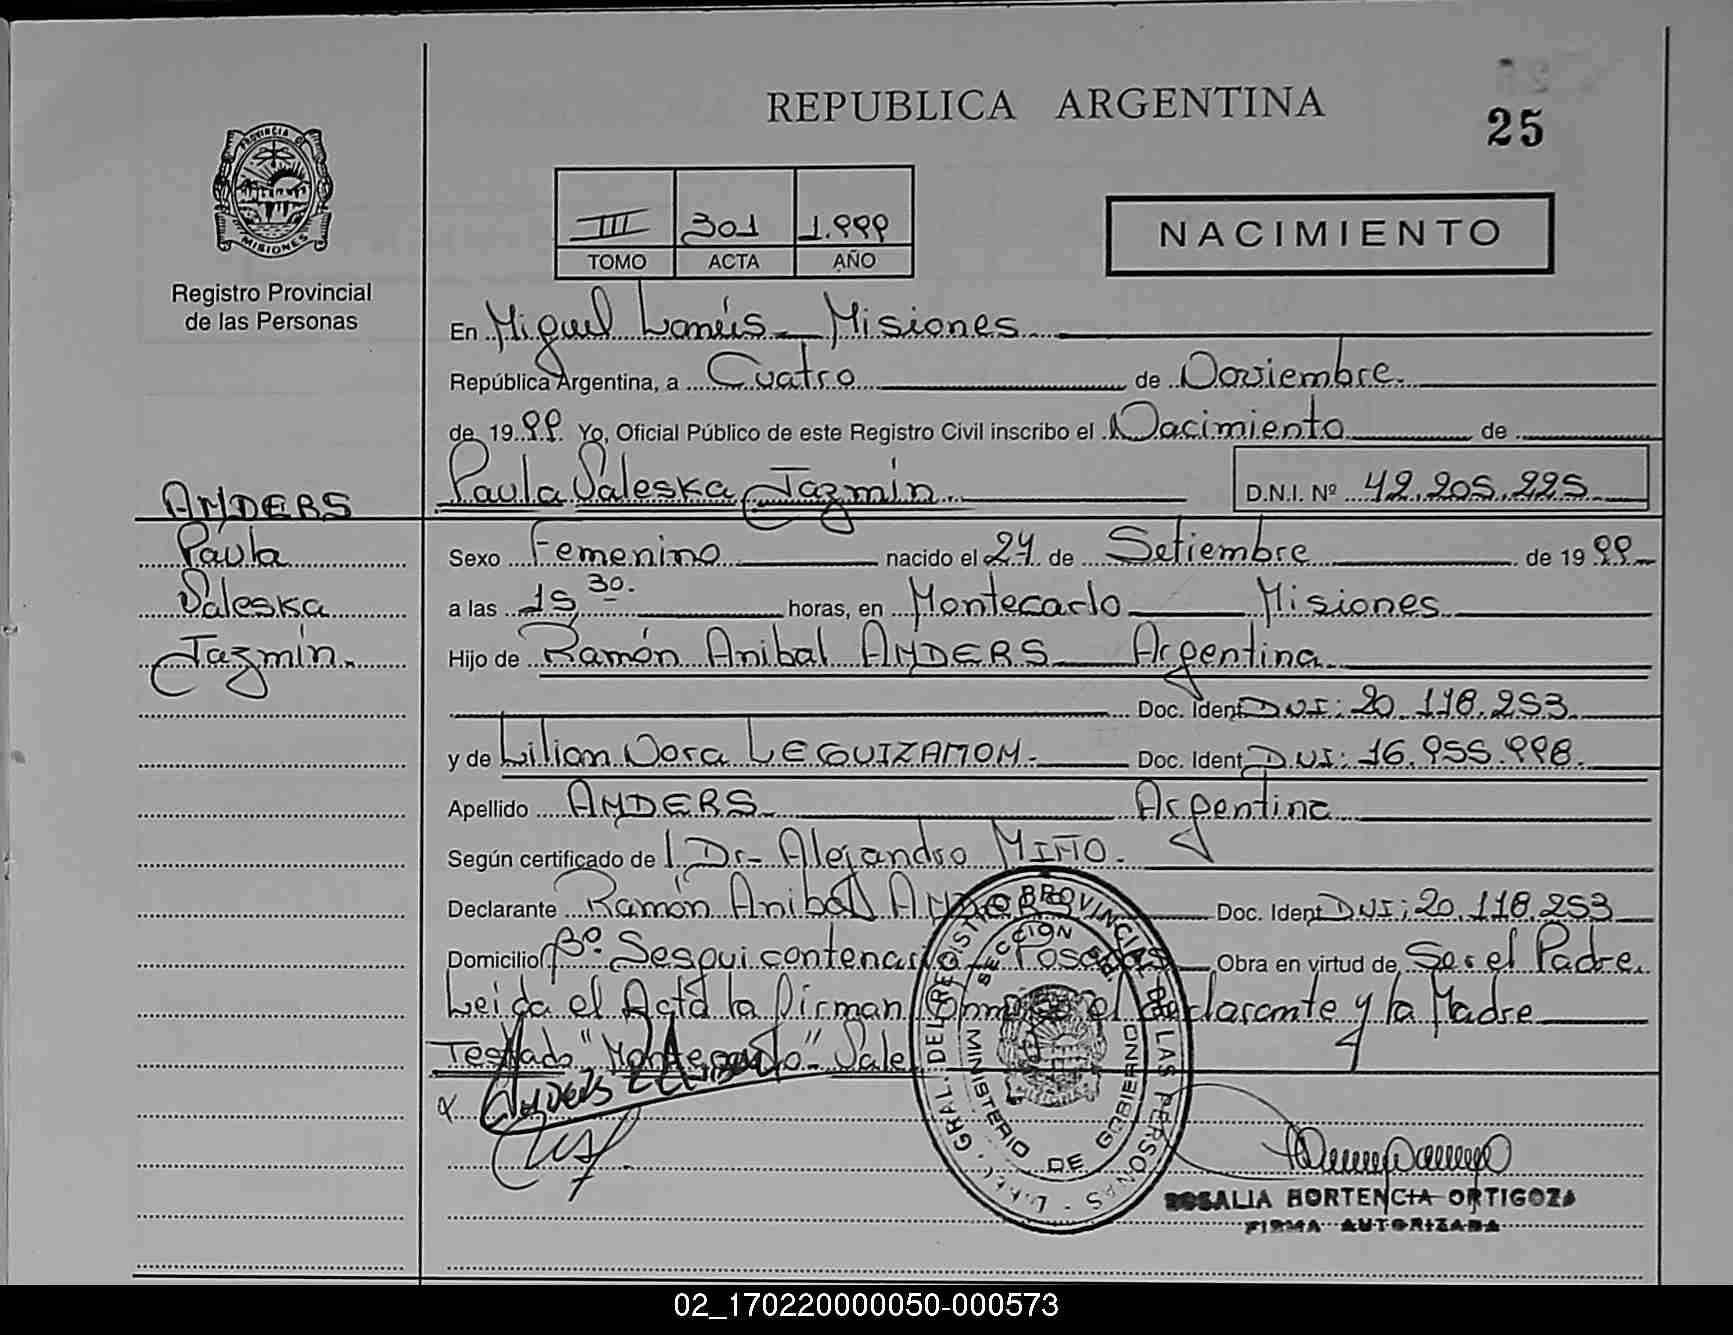 REPUBLICA ARGENTINA
25
PROVINCIA DE
MISIONES
Registro Provincial
de las Personas
III 301 1.999
TOMO ACTA AÑO
NACIMIENTO
En Miguel Lanús Misiones
República Argentina, a Cuatro de Noviembre
de 1999 Yo, Oficial Público de este Registro Civil inscribo el Nacimiento de
Paula Valeska Jazmín D.N.I. Nº 42.205.225
ANDERS
Paula
Valeska
Jazmín.
Sexo Femenino nacido el 24 de Setiembre de 1999
a las 15 30. horas, en Montecarlo Misiones
Hijo de Ramón Anibal ANDERS Argentina
Doc. Ident DNI: 20.118.253
y de Lilian Nora LEGUIZAMON. Doc. Ident D.NI: 16.955.998.
Apellido ANDERS Argentina
Según certificado de Dr. Alejandro MIÑO.
Declarante Ramón Anibal ANDERS Doc. Ident DNI: 20.118.253
Domicilio Bº. Sesquicentenario Posadas Obra en virtud de Ser el Padre.
Leida el Acta la firman conmigo el declarante y la Madre
Testado "Montecarlo" Vale
DIREC. GRAL. DEL REGISTRO PROVINCIAL DE LAS PERSONAS
MINISTERIO DE GOBIERNO
ROSALIA HORTENCIA ORTIGOZA
FIRMA AUTORIZADA
02_170220000050-000573